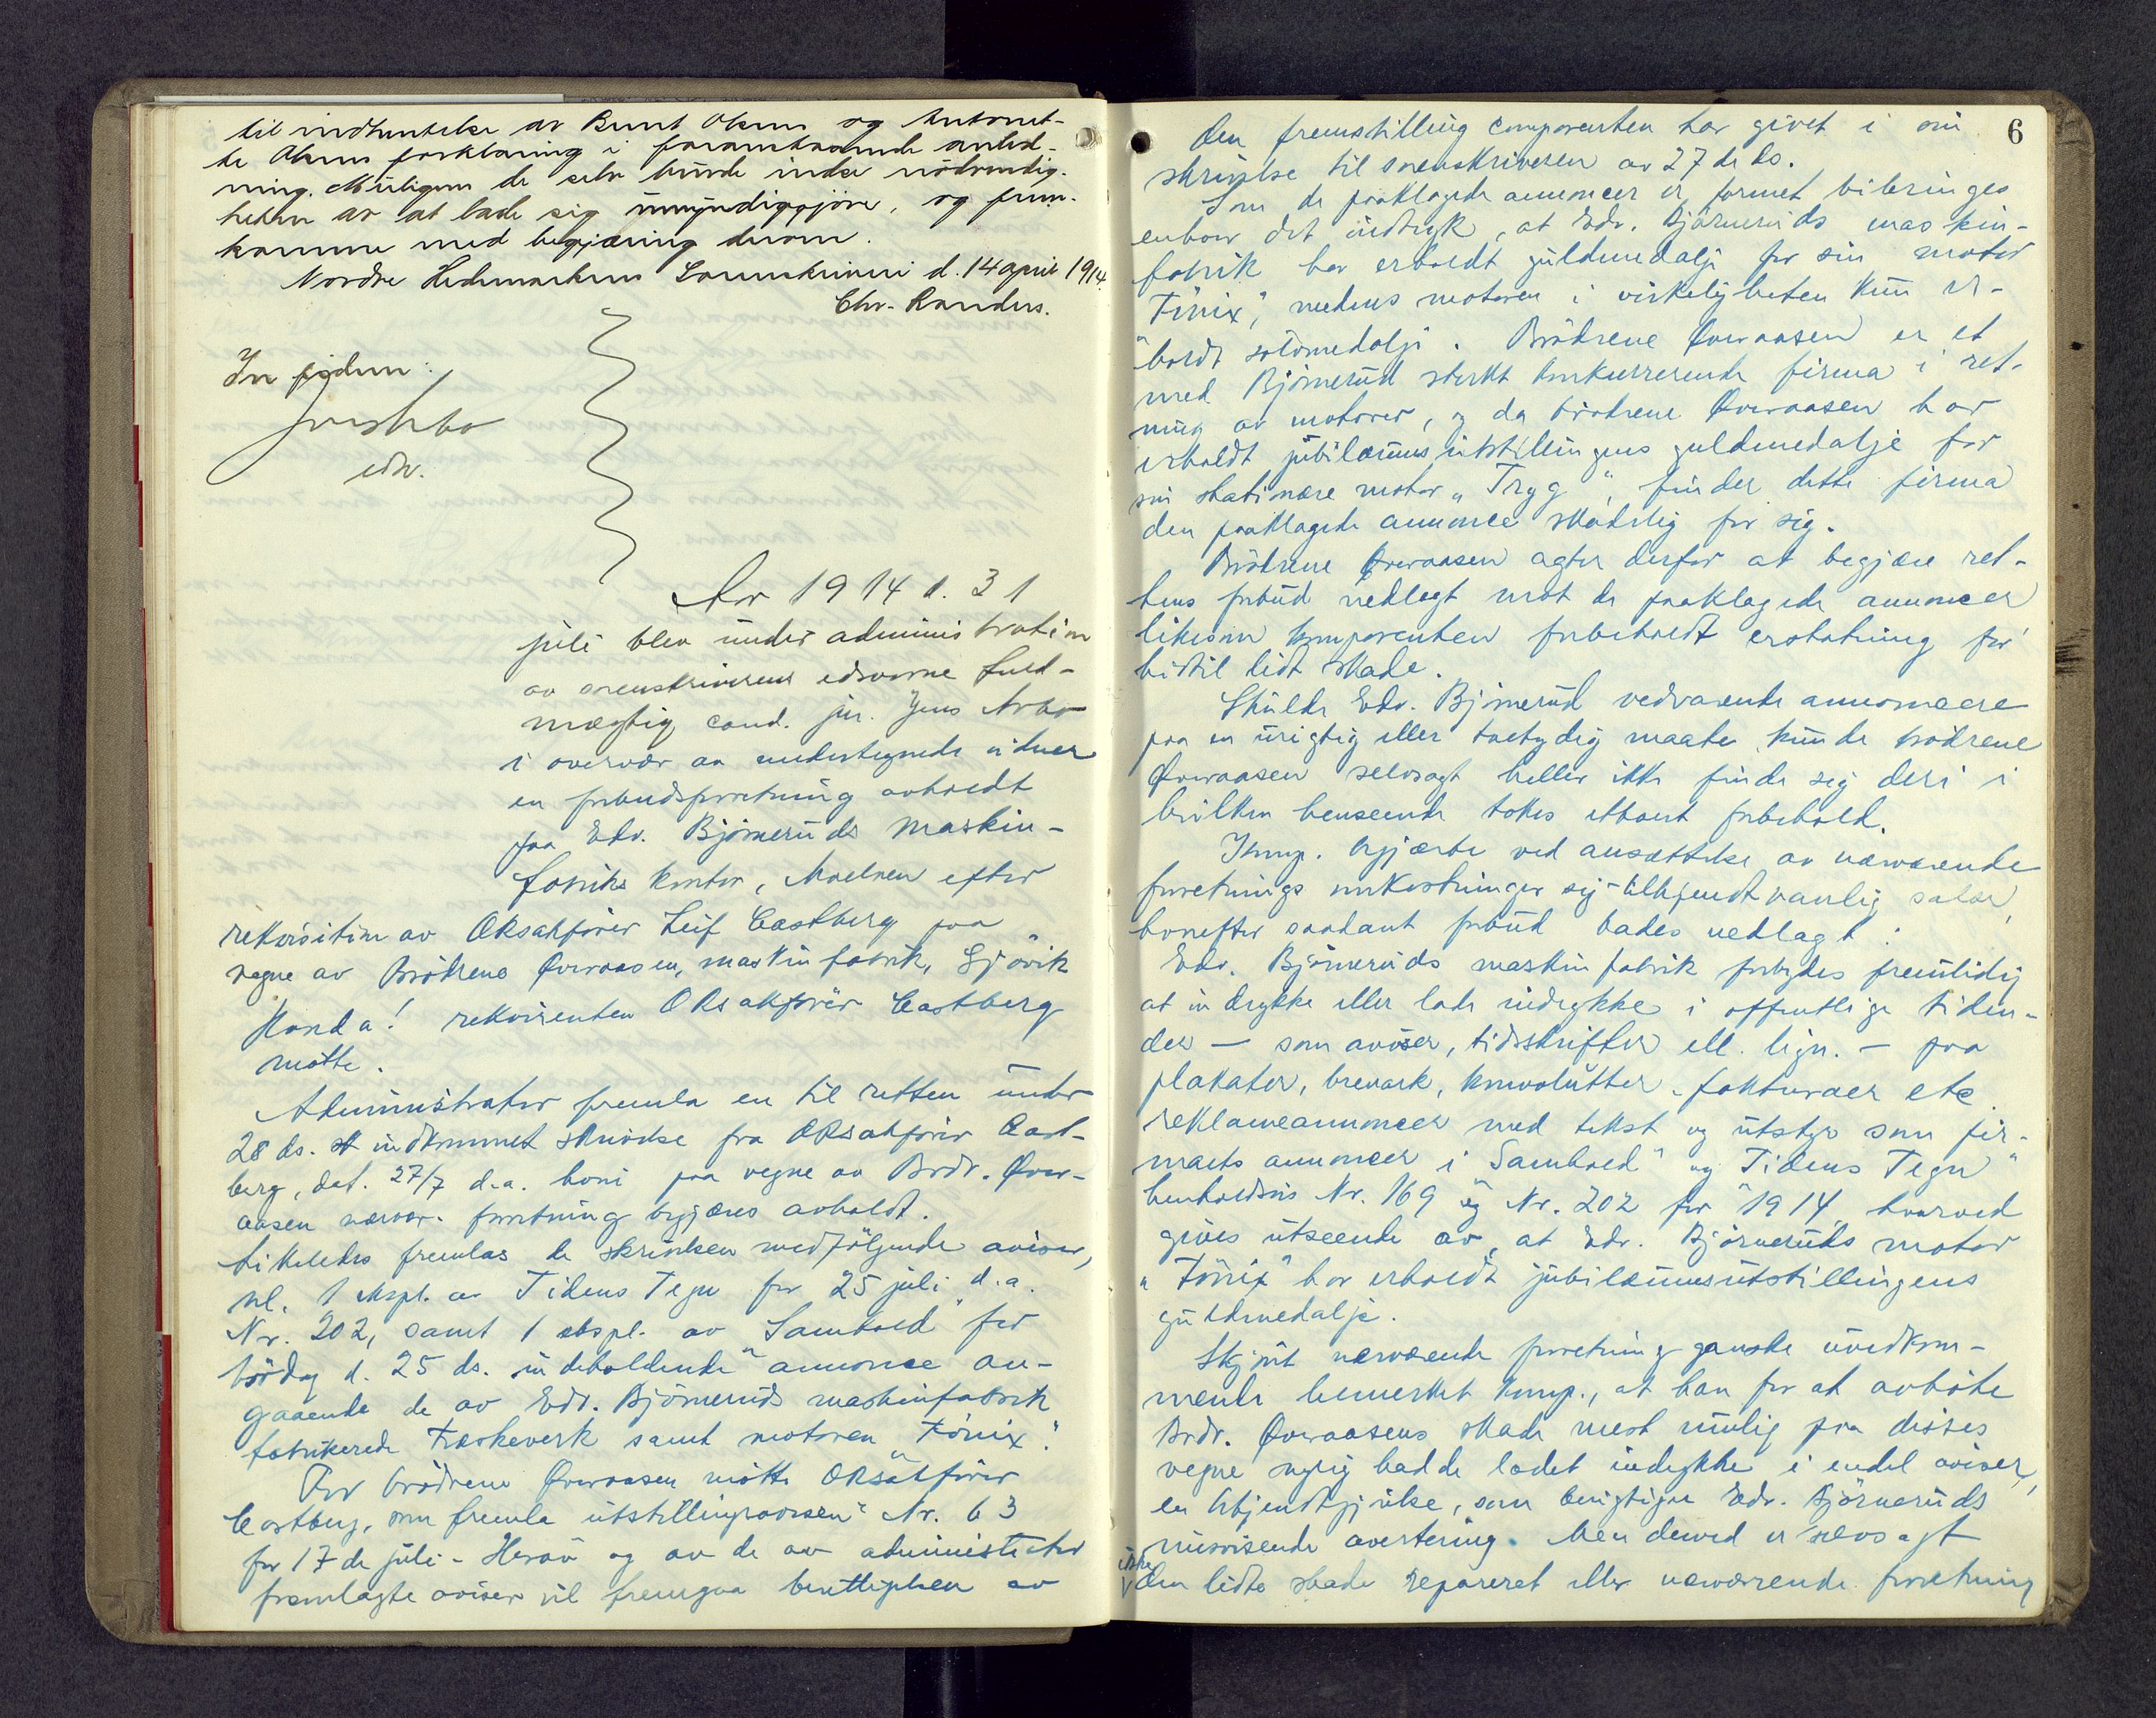 til indhentelse av Bernt Olsens og Antonet-
te Olsens forklaring i foranstaaende anled-
ning. Muligens de selv burde indse nödvendig-
heten av at lade sig umyndiggjöre, og frem-
komme med begjæring derom.
Nordre Hedemarkens Sorenskriveri d. 14 april 1914.
Chr. Randers.
In fidem:
edv.
Aar 1914 d. 31
juli blev under administration
av sorenskriverens edsvorne fuld-
mægtig cand. jur. Jens Arbo
i overvær av undertegnede vidner
en forbudsforretning avholdt
paa Edv. Björneruds maskin-
fabriks kontor, Moelven efter
rekvisition av Oksakförer Leif Castberg paa
vegne av Brödrene Överaasen, maskinfabrik, Gjövik
rekvirenten Oksakförer Castberg
mötte.
Administrator fremla en til retten under
28 ds. indkommet skrivelse fra Oksakförer Cast-
berg, dat. 27/7 d.a. hvori paa vegne av Brdr. Över-
aasen nærvær. forretning begjæres avholdt.
Likeledes fremlas de skrivelsen medfölgende aviser,
nl. 1 ekspl. av "Tidens Tegn" for 25 juli d.a.
Nr. 202, samt 1 ekspl. av "Samhold" for
lördag d. 25 ds. indeholdende annonce an-
gaaende de av Edv. Björneruds maskinfabrik
fabrikerede træskeverk samt motoren "Fönix".
For brödrene Överaasen mötte Oksakförer
Castberg, som fremla utstillingsavisen Nr. 63
for 17de juli. Herav og av de av administrator
fremlagte aviser vil fremgaa berettigelsen av
6
den fremstilling komparenten har givet i sin
skrivelse til sorenskriveren av 27de ds.
Som de paaklagede annoncer er formet bibringes
enhver det indtryk, at Edv. Björneruds maskin-
fabrik har erholdt guldmedalje for sin motor
"Fönix", medens motoren i virkeligheten kun er-
holdt sölvmedalje. Brödrene Överaasen er et
med Björnerud sterkt konkurrerende firma i ret-
ning av motorer, og da brödrene Överaasen har
erholdt jubilæumsutstillingens guldmedalje for
sin stationære motor "Tryg", finder dette firma
den paaklagede annonce skadelig for sig.
Brödrene Överaasen agter derfor at begjære ret-
tens forbud nedlagt mot de paaklagede annoncer
likesom komparenten forbeholdt erstatning for
hittil lidt skade.
Skulde Edv. Björnerud vedvarende annoncere
paa en urigtig eller tvetydig maate, kunde brödrene
Överaasen selvsagt heller ikke finde sig deri i
hvilken henseende tokes ethvert forbehold.
Komp. begjærte ved ansættelse av nærværende
forretnings omkostninger sig tilkjendt vanlig salær,
hvorefter saadant forbud bades nedlagt:
Edv. Björneruds maskinfabrik forbydes fremtidig
at indrykke eller lade indrykke i offentlige tiden-
der — som aviser, tidsskrifter ell. lign. — paa
plakater, brevark, konvolutter, fakturaer etc.
reklameannoncer med tekst og utstyr som fir-
maets annoncer i "Samhold" og "Tidens Tegn"
henholdsvis Nr. 169 og Nr. 202 for 1914 hvorved
gives utseende av, at Edv. Björneruds motor
"Fönix" har erholdt jubilæumsutstillingens
guldmedalje.
Skjönt nærværende forretning ganske uvedkom-
mende bemerket komp., at han for at avböte
Brdr. Överaasens skade mest mulig paa disses
vegne nylig hadde ladet indrykke i endel aviser,
en bekjendtgjörelse, som berigtiger Edv. Björneruds
misvisende avertering. Men derved er selvsagt
ikke
den lidte skade repareret eller nærværende forretning